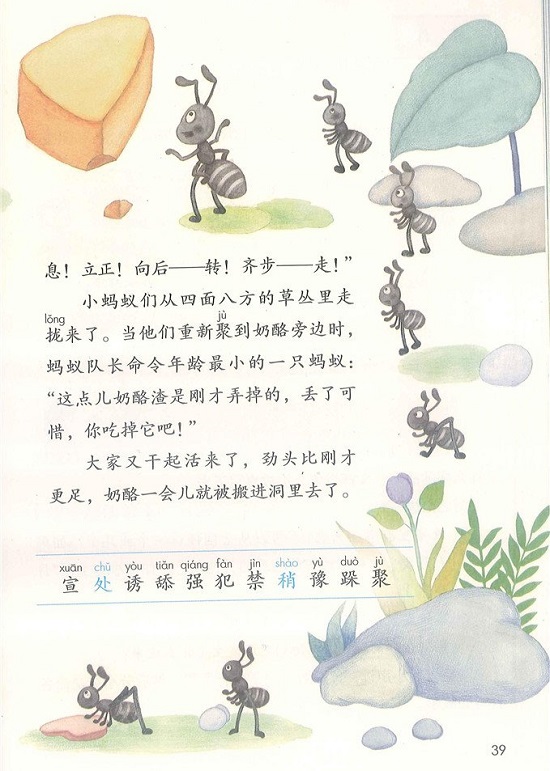 息！立正！向后——转！齐步——走！”
小蚂蚁们从四面八方的草丛里走
lǒng jù
拢来了。当他们重新聚到奶酪旁边时，
蚂蚁队长命令年龄最小的一只蚂蚁：
“这点儿奶酪渣是刚才弄掉的，丢了可
惜，你吃掉它吧！”
大家又干起活来了，劲头比刚才
更足，奶酪一会儿就被搬进洞里去了。
xuān chǔ yòu tiǎn qiáng fàn jìn shào yù duò jù
宣 处 诱 舔 强 犯 禁 稍 豫 跺 聚
39